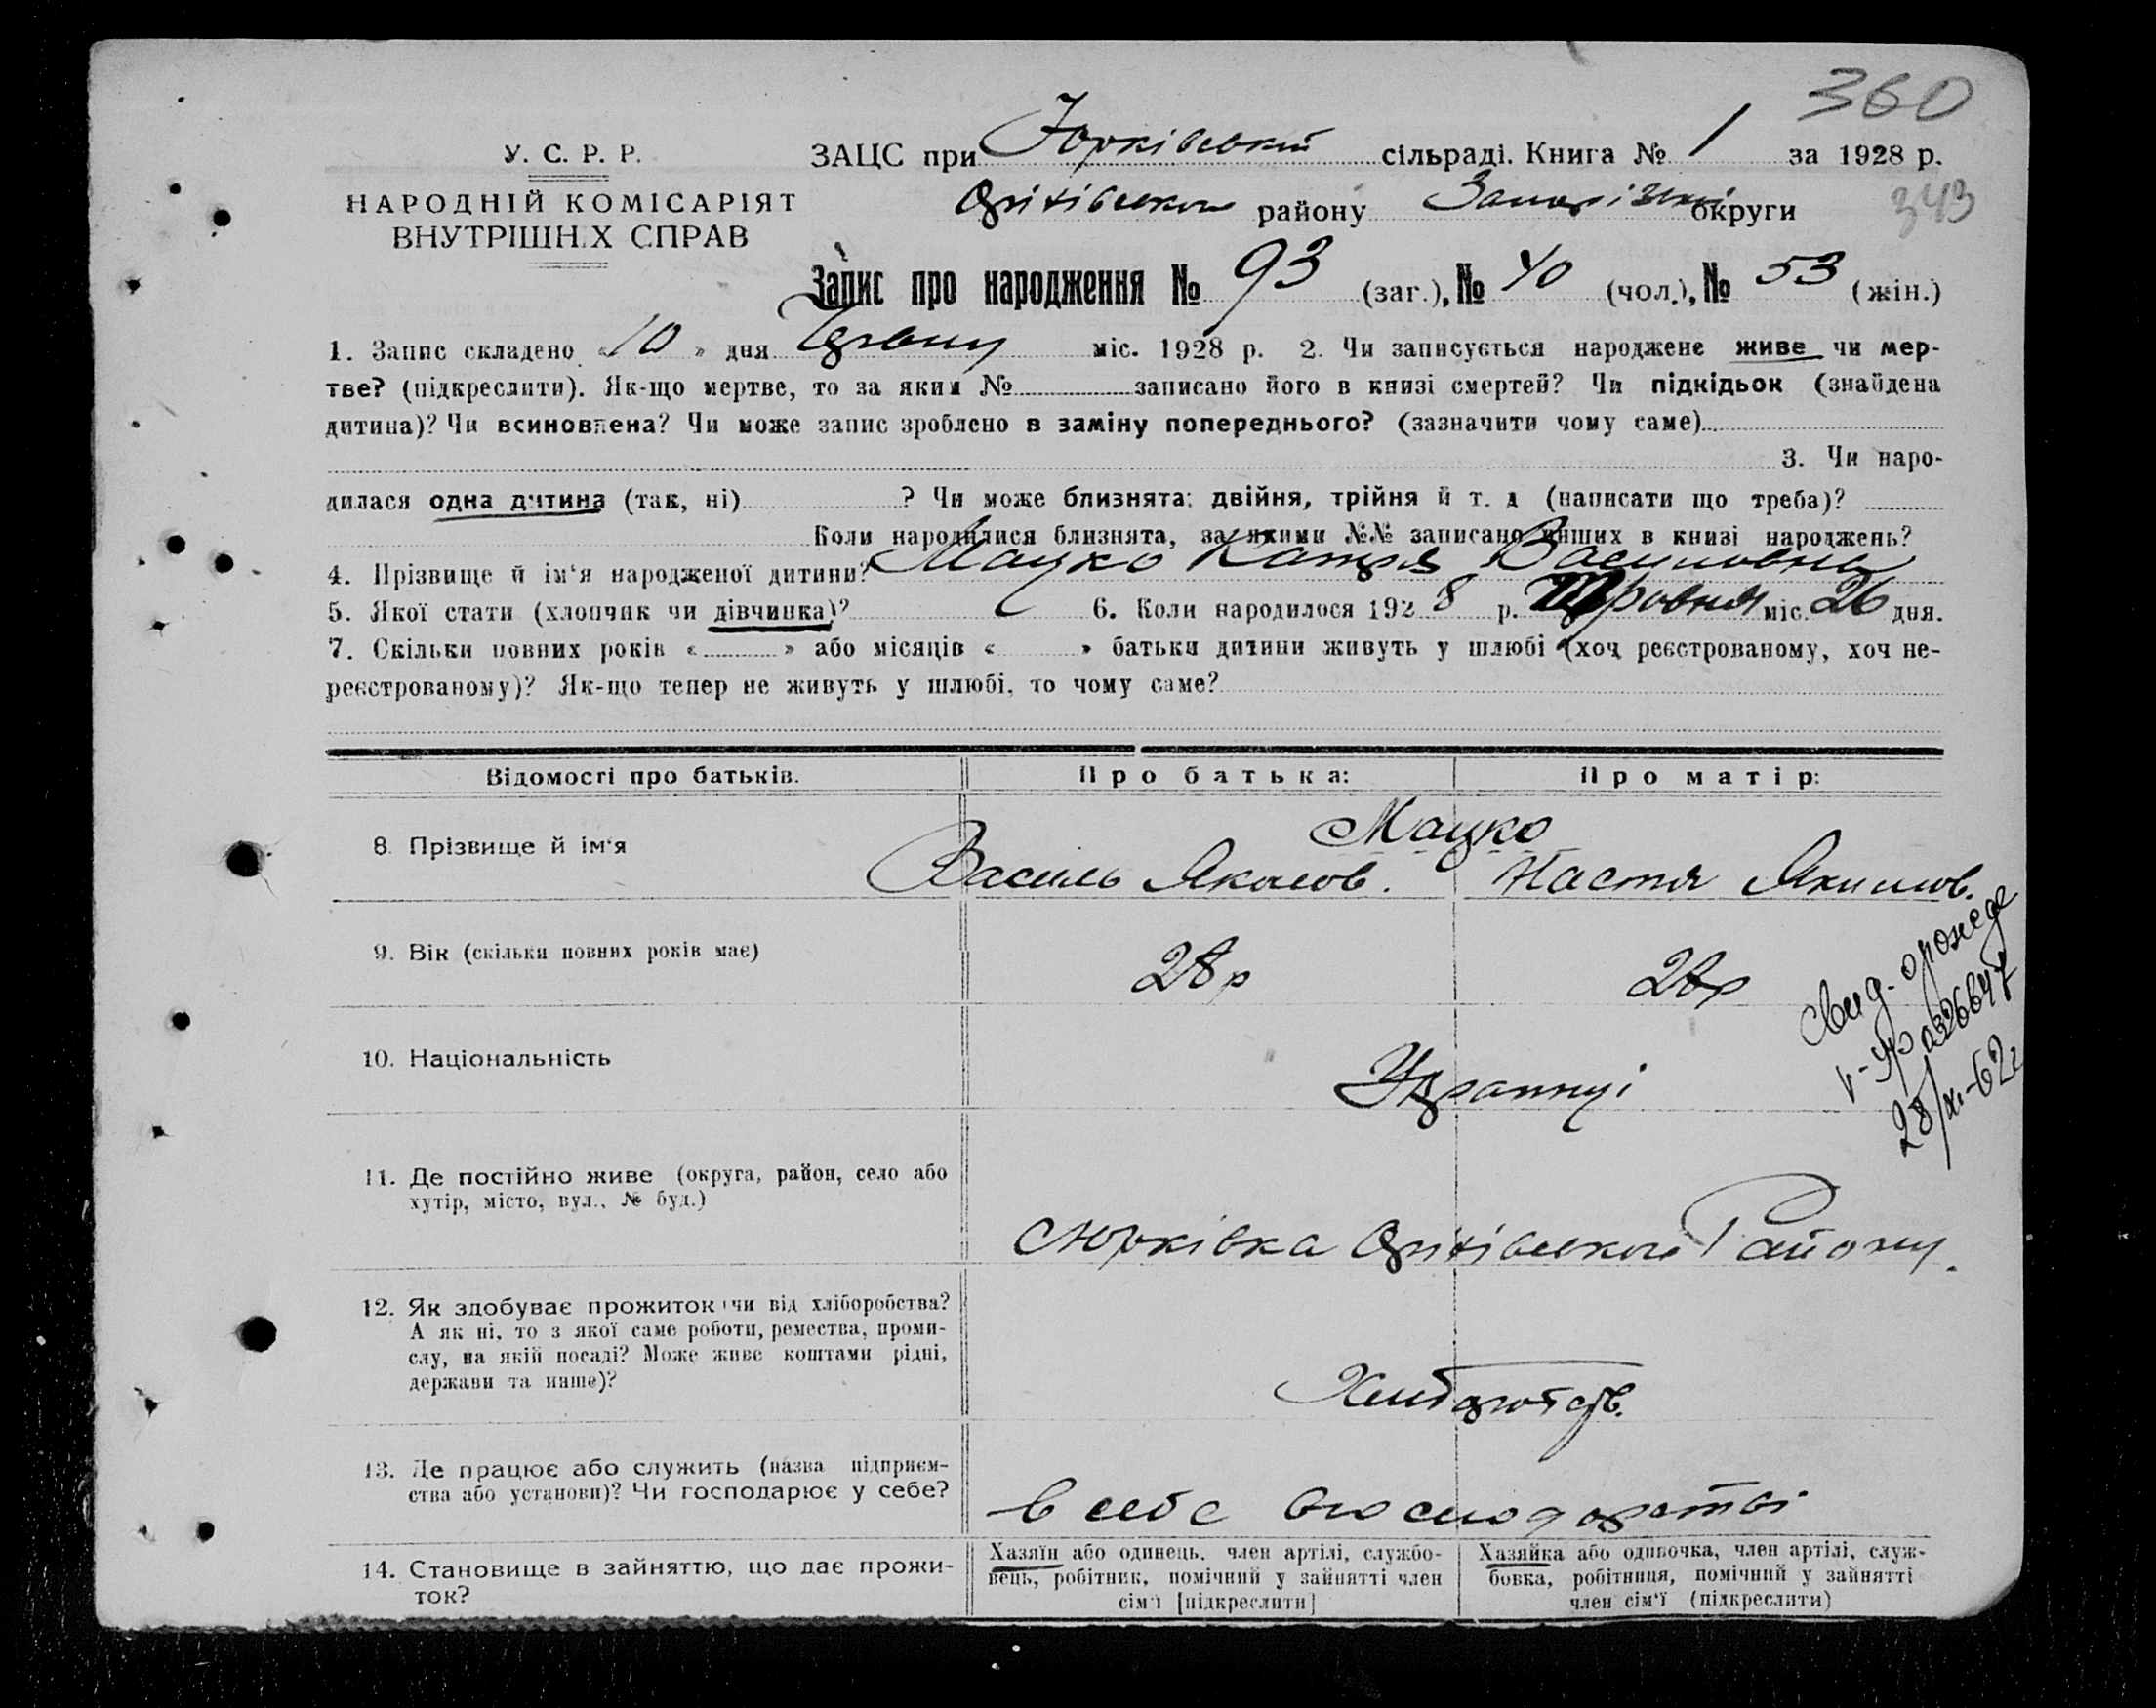 360
У. С. Р. Р.
ЗАЦС при Юрківській сільраді. Книга № 1 за 1928 р.
НАРОДНІЙ КОМІСАРІЯТ
ВНУТРІШН.Х СПРАВ
Оріхівського району Запорізької округи
343
Запис про народження № 93 (заг.), № 40 (чол.), № 53 (жін.)
1. Запис складено «10» дня Червню міс. 1928 р. 2. Чи записується народжене живе чи мер-
тве? (підкреслити). Як-що мертве, то за яким № записано його в книзі смертей? Чи підкідьок (знайдена
дитина)? Чи всиновлена? Чи може запис зроблено в заміну попереднього? (зазначити чому саме)
3. Чи наро-
дилася одна дитина (так, ні) ? Чи може близнята: двійня, трійня й т. д (написати що треба)?
Коли народилися близнята, за якими №№ записано инших в книзі народжень?
4. Прізвище й ім‘я народженої дитини? Мацко Катря Василовна
5. Якої стати (хлопчик чи дівчинка)? 6. Коли народилося 1928 р. Травня міс. 26 дня.
7. Скільки повних років « » або місяців « » батьки дитини живуть у шлюбі (хоч реєстрованому, хоч не-
реєстрованому)? Як-що тепер не живуть у шлюбі, то чому саме?
Відомості про батьків. Про батька: Про матір:
8. Прізвище й ім‘я
Мацко
Василь Яковов. Настя Якимов.
9. Вік (скільки повних років має) 28р 28р
Свид. о рожде
28/XI-62г
10. Національність Украинці
11. Де постійно живе (округа, район, село або
хутір, місто, вул., № буд.)
с Юрківка Оріхівського Району.
12. Як здобуває прожиток чи від хліборобства?
А як ні, то з якої саме роботи, ремества, проми-
слу, на якій посаді? Може живе коштами рідні,
держави та инше)?
Хлиборобств.
13. Де працює або служить (назва підприєм-
ства або установи)? Чи господарює у себе?
в себе в господарстві
14. Становище в зайняттю, що дає прожи-
ток?
Хазяїн або одинець, член артілі, службо-
вець, робітник, помічний у зайнятті член
сім‘ї [підкреслити]
Хазяйка або одиночка, член артілі, служ-
бовка, робітниця, помічний у зайнятті
член сім‘ї (підкреслити)